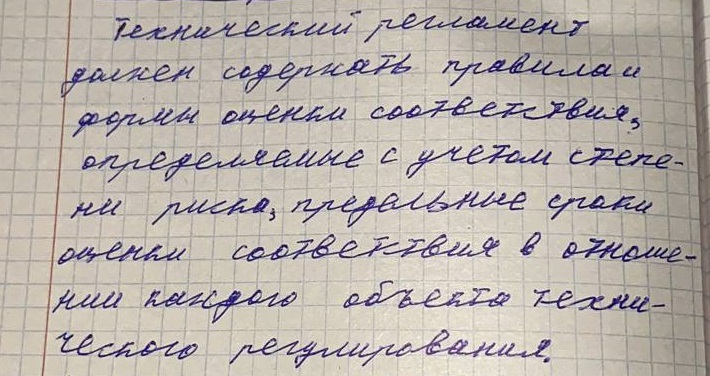 Технический регламент
должен содержать правила и
формы оценки соответствия,
определяемые с учетом степе-
ни риска, предельные сроки
оценки соответствия в отноше-
нии каждого объекта техни-
ческого регулирования.